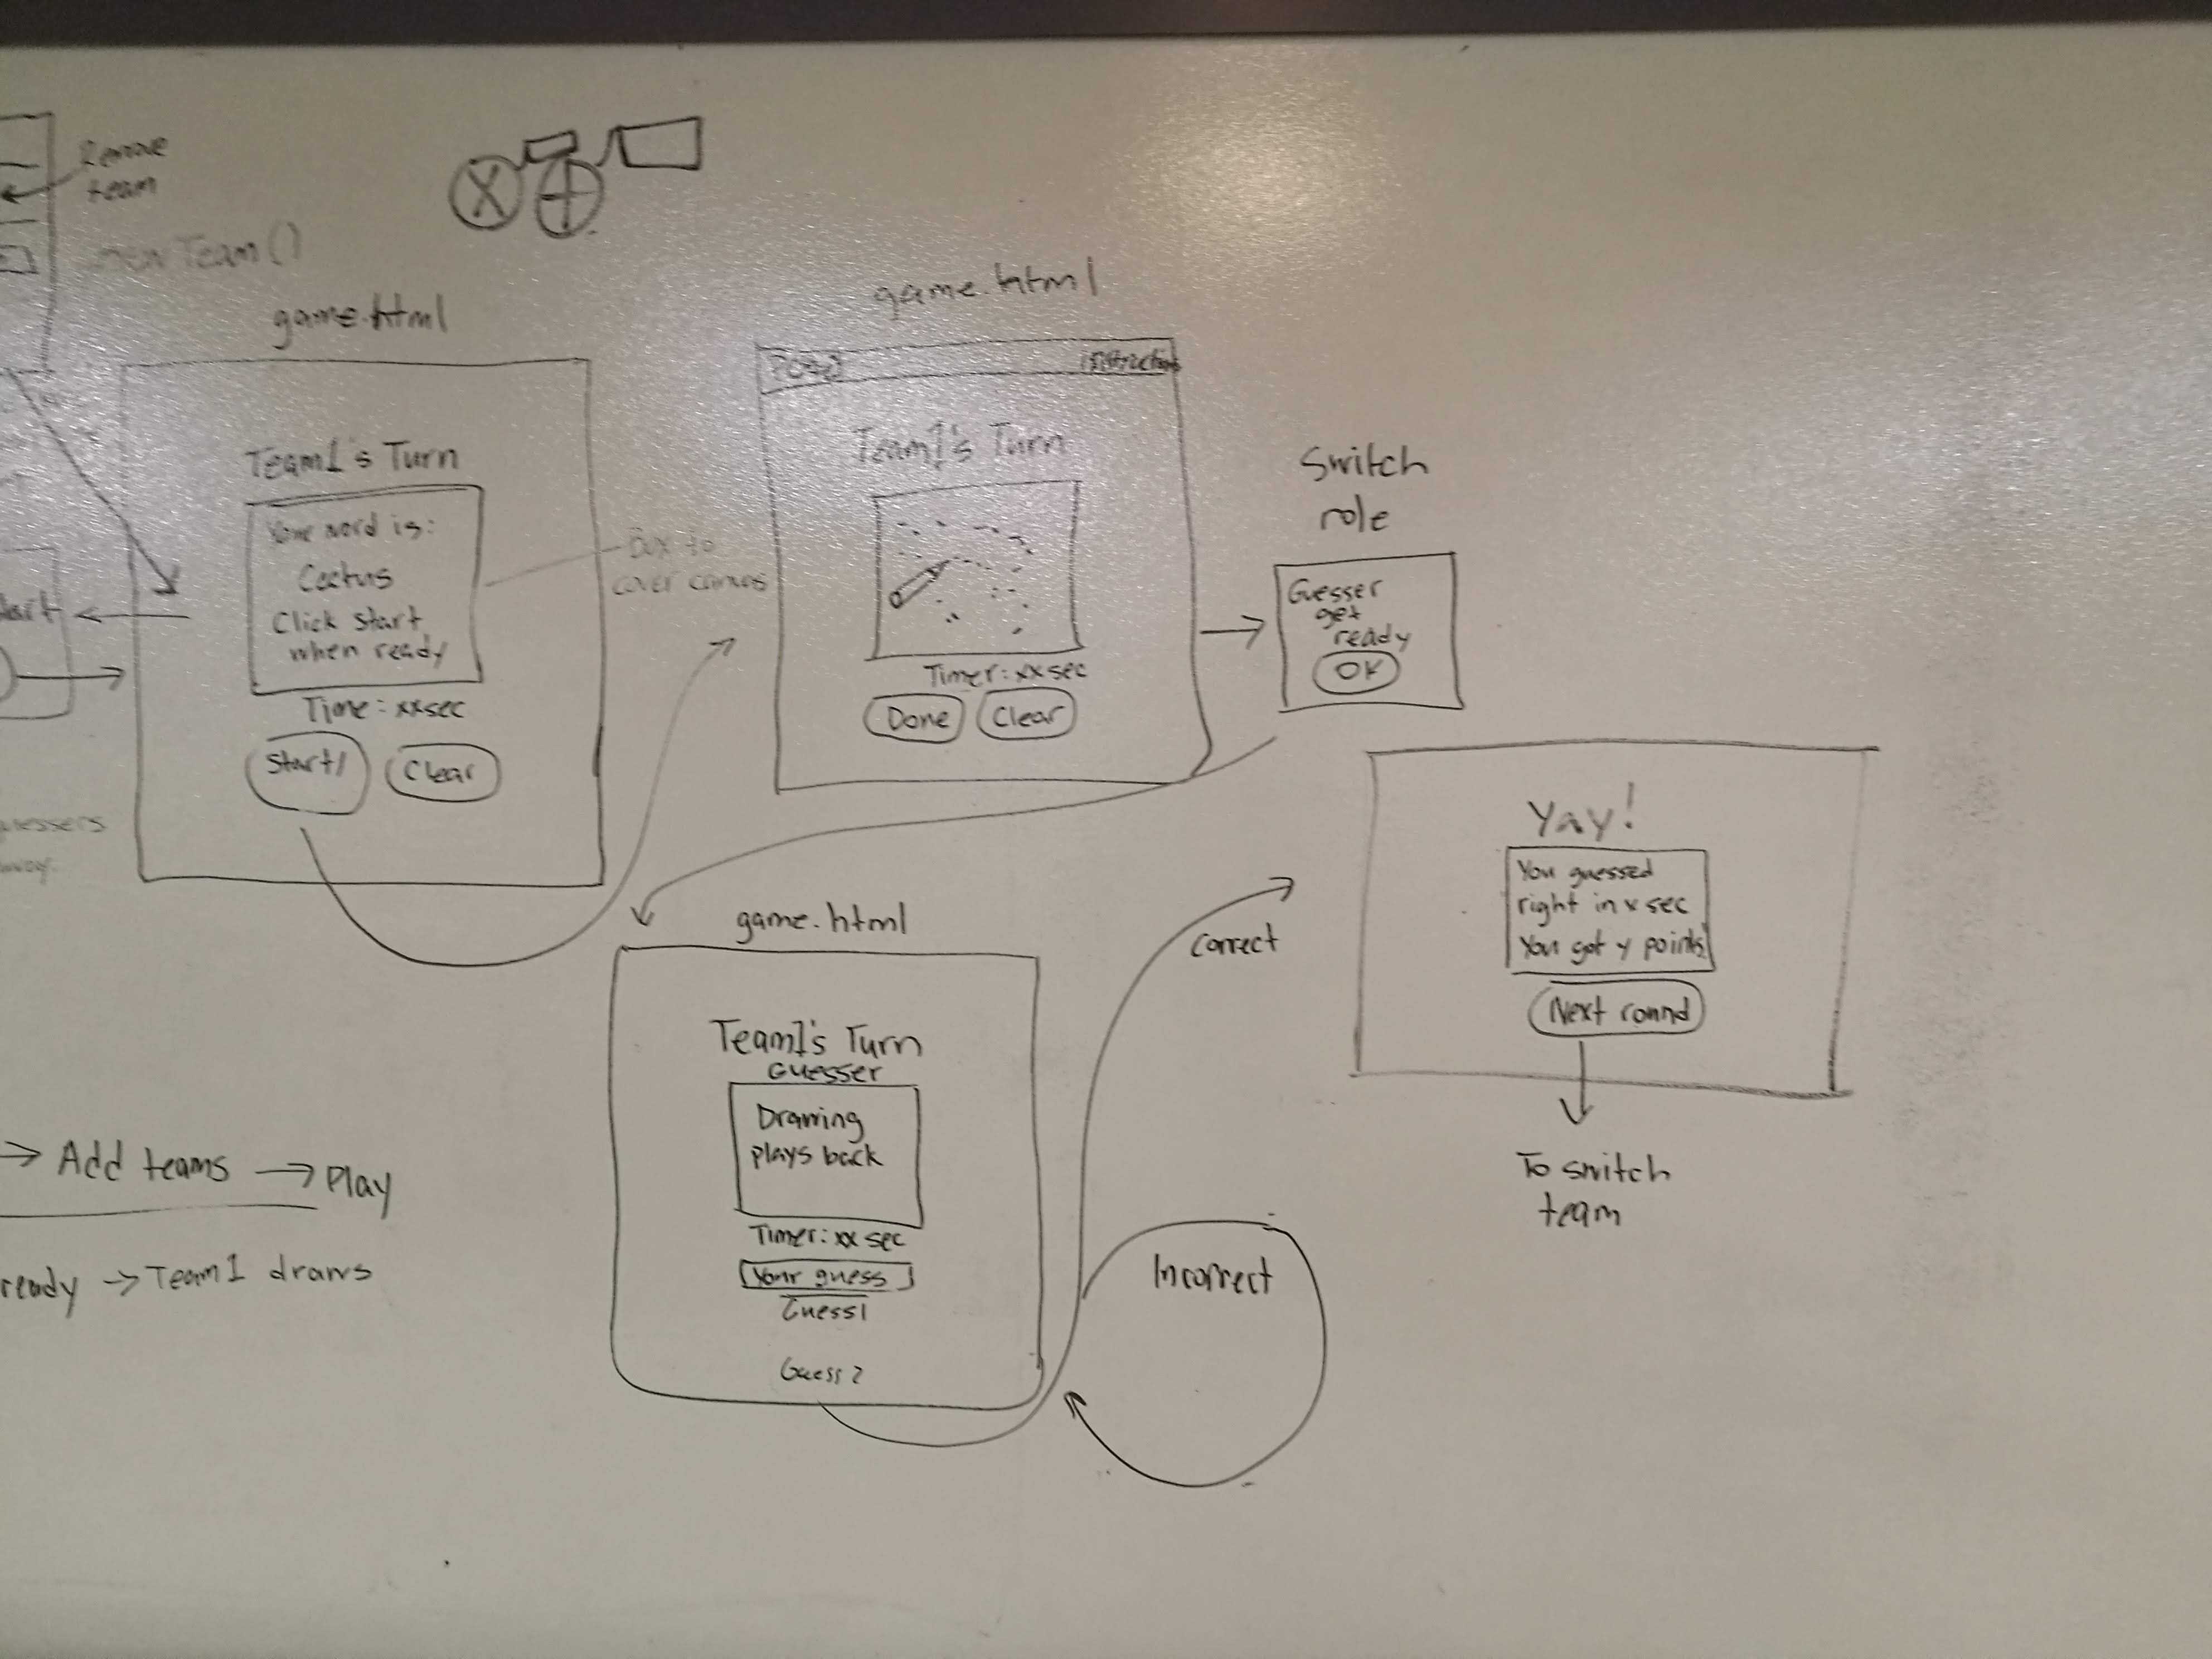 Remove
team
new Team()
game.html
Team1's Turn
Your word is:
Cactus
Click start
when ready
Time: xxsec
Start/
Clear
Box to
cover canvas
game.html
instructions
Team1's Turn
Timer: xxsec
Done
Clear
Switch
role
Guesser
get
ready
OK
game.html
Team1's Turn
Guesser
Drawing
plays back
Timer: xx sec
Your guess
Guess1
Guess2
Correct
Incorrect
Yay!
You guessed
right in x sec
You got y points!
Next round
To switch
team
guessers
→ Add teams → Play
ready → Team1 draws